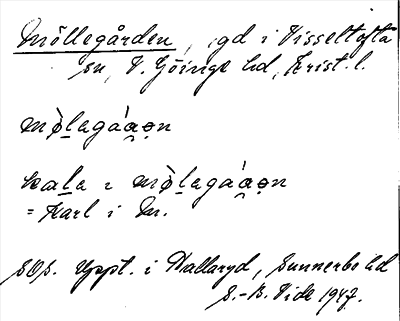 Möllegården, gd i Visseltofta
sn, V. Göinge hd, Krist. l.
mø̀lagáa̯o̯n
kala ı mø̀lagáa̯o̯n
= Karl i M.
SOS. Uppt. i Hallaryd, Sunnerbo hd
S.-B. Vide 1947.